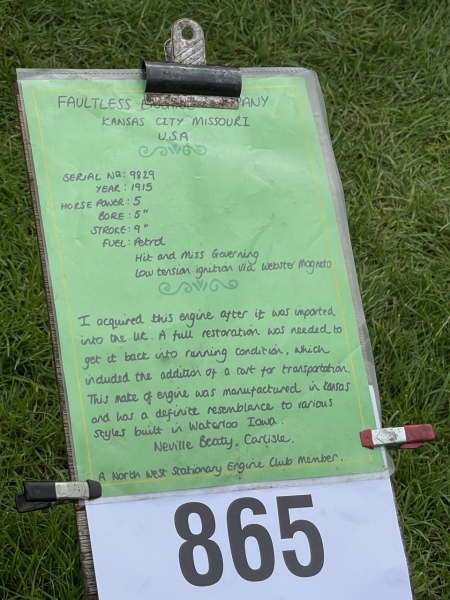 FAULTLESS ENGINE COMPANY
KANSAS CITY MISSOURI
U.S.A
SERIAL Nº: 9829
YEAR: 1915
HORSE POWER: 5
BORE: 5"
STROKE: 9"
FUEL: Petrol
Hit and Miss Governing
Low tension ignition via Webster Magneto
I acquired this engine after it was imported
into the UK. A full restoration was needed to
get it back into running condition, which
included the addition of a cart for transportation
This make of engine was manufactured in Kansas
and has a definite resemblance to various
styles built in Waterloo Iowa.
Neville Beaty, Carlisle.
A North West Stationary Engine Club Member.
865